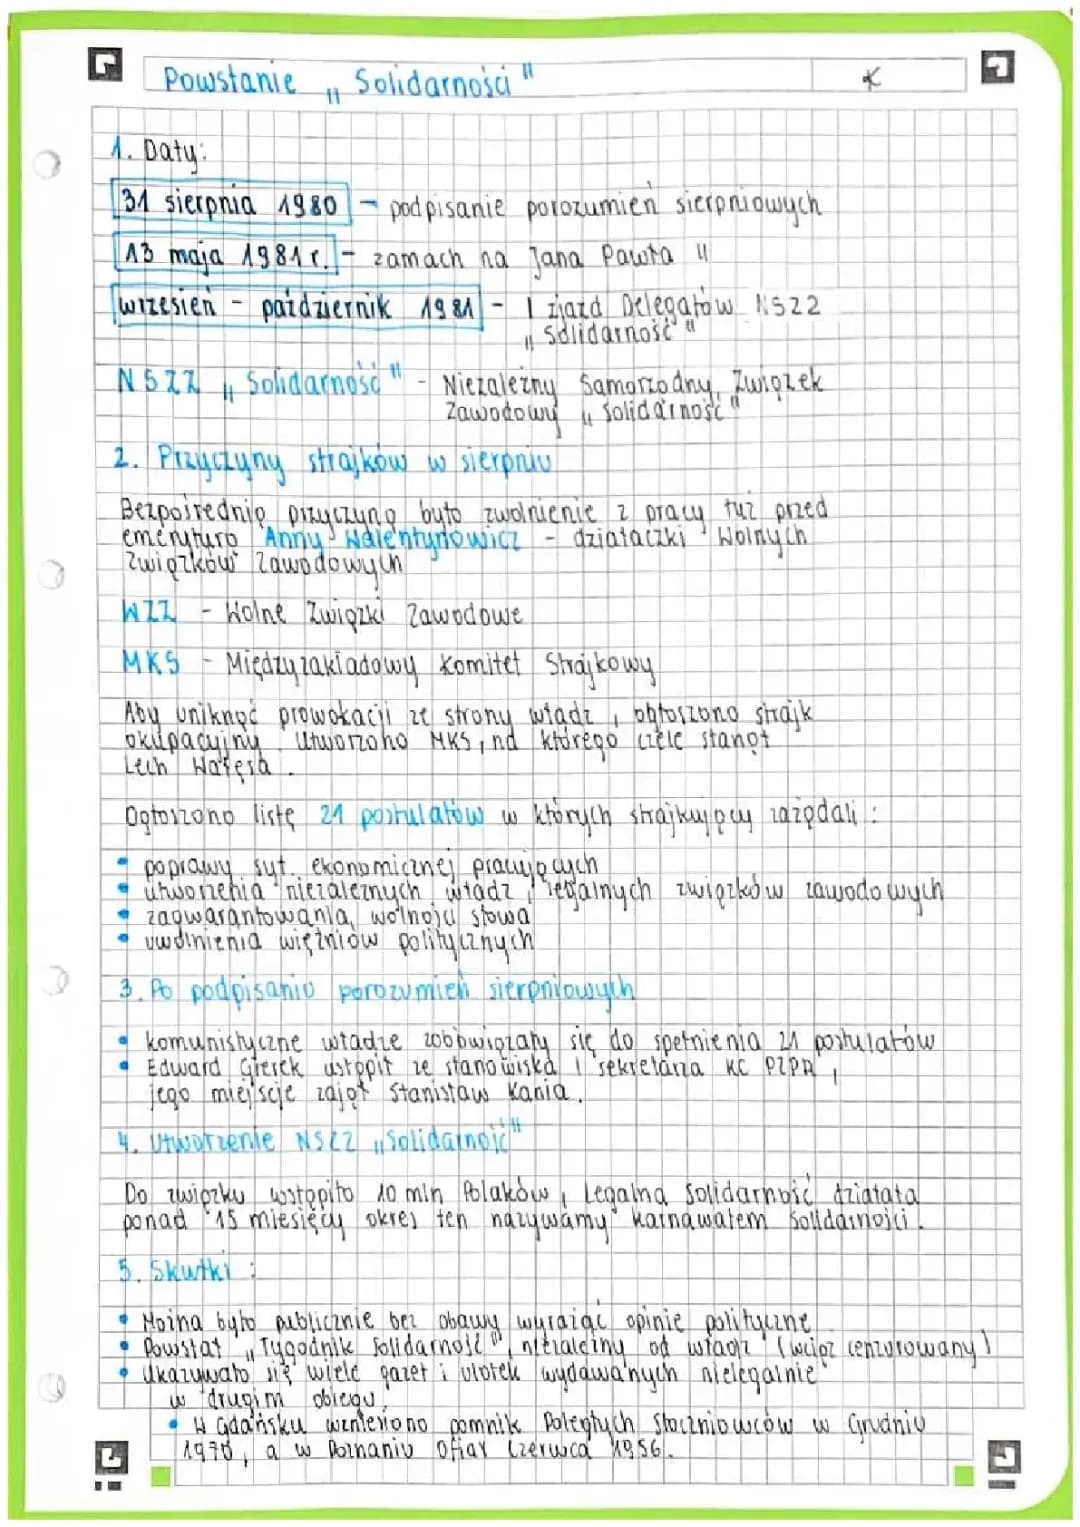 Powstanie „Solidarności"
K
1. Daty:
31 sierpnia 1980 – podpisanie porozumień sierpniowych
13 maja 1981 r. – zamach na Jana Pawła II
wrzesień - październik 1981 – I zjazd Delegatów NSZZ
„Solidarność"
NSZZ „Solidarność" - Niezależny Samorządny Związek
Zawodowy „Solidarność"
2. Przyczyny strajków w sierpniu
Bezpośrednią przyczyną było zwolnienie z pracy tuż przed
emeryturą Anny Walentynowicz - działaczki Wolnych
Związków Zawodowych
WZZ - Wolne Związki Zawodowe
MKS - Międzyzakładowy Komitet Strajkowy
Aby uniknąć prowokacji ze strony władz, ogłoszono strajk
okupacyjny. Utworzono MKS, na którego czele stanął
Lech Wałęsa.
Ogłoszono listę 21 postulatów w których strajkujący zażądali:
• poprawy syt. ekonomicznej pracujących
• utworzenia niezależnych władz, legalnych związków zawodowych
• zagwarantowania wolności słowa
• uwolnienia więźniów politycznych
3. Po podpisaniu porozumień sierpniowych
• komunistyczne władze zobowiązały się do spełnienia 21 postulatów
• Edward Gierek ustąpił ze stanowiska I sekretarza KC PZPR,
jego miejsce zajął Stanisław Kania.
4. Utworzenie NSZZ „Solidarność"
Do związku wstąpiło 10 mln Polaków, Legalna Solidarność działała
ponad 15 miesięcy okres ten nazywamy karnawałem Solidarności.
5. Skutki:
• Można było publicznie bez obawy wyrażać opinie polityczne
• Powstał „Tygodnik Solidarność", niezależny od władz (wciąż cenzurowany)
• Ukazywało się wiele gazet i ulotek wydawanych nielegalnie
w drugim obiegu.
• W Gdańsku wzniesiono pomnik Poległych Stoczniowców w Grudniu
1970, a w Poznaniu Ofiar Czerwca 1956.